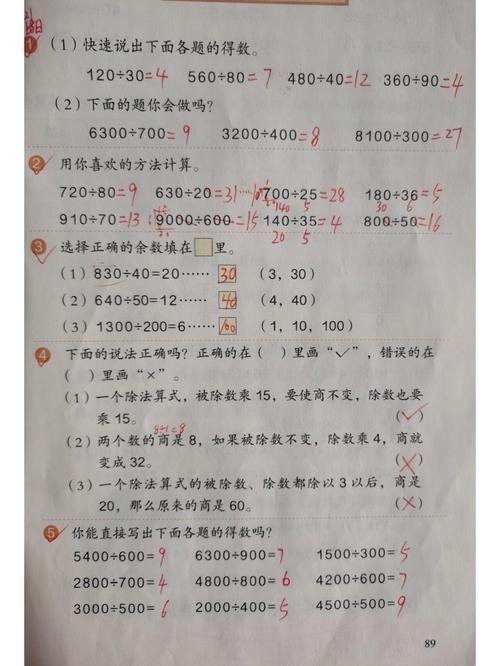 1 (1) 快速说出下面各题的得数。
120÷30=4 560÷80=7 480÷40=12 360÷90=4
(2) 下面的题你会做吗?
6300÷700=9 3200÷400=8 8100÷300=27
2 用你喜欢的方法计算。
720÷80=9 630÷20=31……10 700÷25=28 180÷36=5
140 5
910÷70=13 9000÷600=15 140÷35=4 800÷50=16
20 5
3 选择正确的余数填在□里。
(1) 830÷40=20…… 30 (3, 30)
(2) 640÷50=12…… 40 (4, 40)
(3) 1300÷200=6…… 100 (1, 10, 100)
4 下面的说法正确吗? 正确的在( )里画“✓”, 错误的在
( )里画“×”。
(1) 一个除法算式, 被除数乘15, 要使商不变, 除数也要
乘15。 (✓)
8÷1=8
(2) 两个数的商是8, 如果被除数不变, 除数乘4, 商就
变成32。 (×)
(3) 一个除法算式的被除数、除数都除以3以后, 商是
20, 那么原来的商是60。 (×)
5 你能直接写出下面各题的得数吗?
5400÷600=9 6300÷900=7 1500÷300=5
2800÷700=4 4800÷800=6 4200÷600=7
3000÷500=6 2000÷400=5 4500÷500=9
89